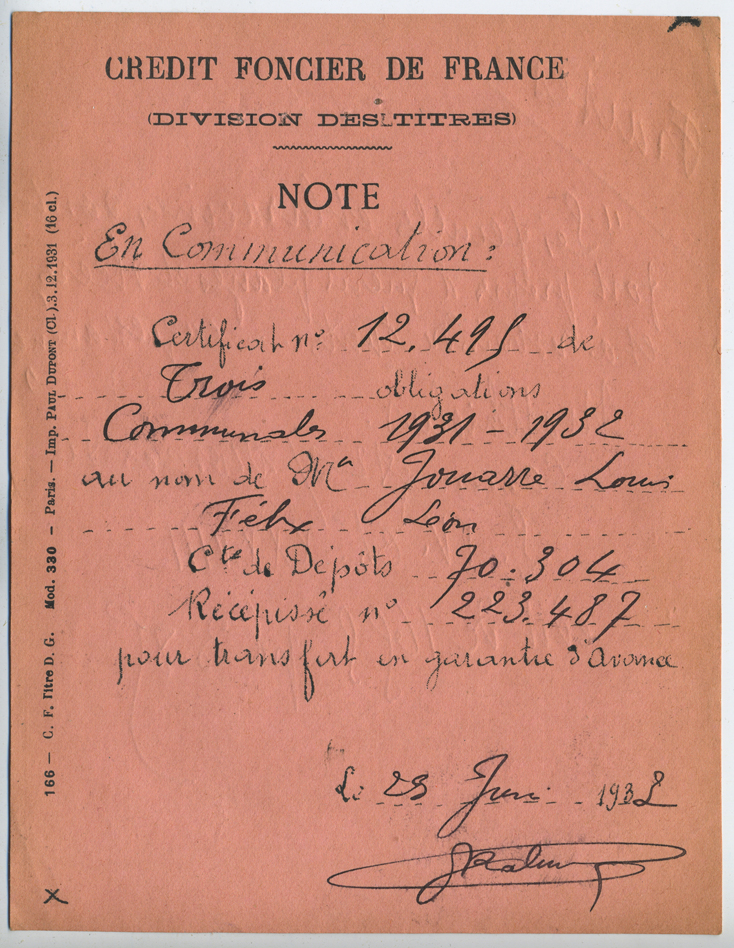 CREDIT FONCIER DE FRANCE
(DIVISION DES TITRES)
NOTE
En Communication :
Certificat n° 12.495 de
Trois obligations
Communales 1931 - 1932
au nom de Mr Jouarre Louis
Félix Léon
Cte de Dépôts 70.304
Récépissé n° 223.487
pour transfert en garantie d'avance
Le 23 Juin 1932
166 — C. F. Titre D. G. Mod. 330 — Paris. — Imp. PAUL DUPONT (Cl.).3.12.1931 (16 cl.)
X